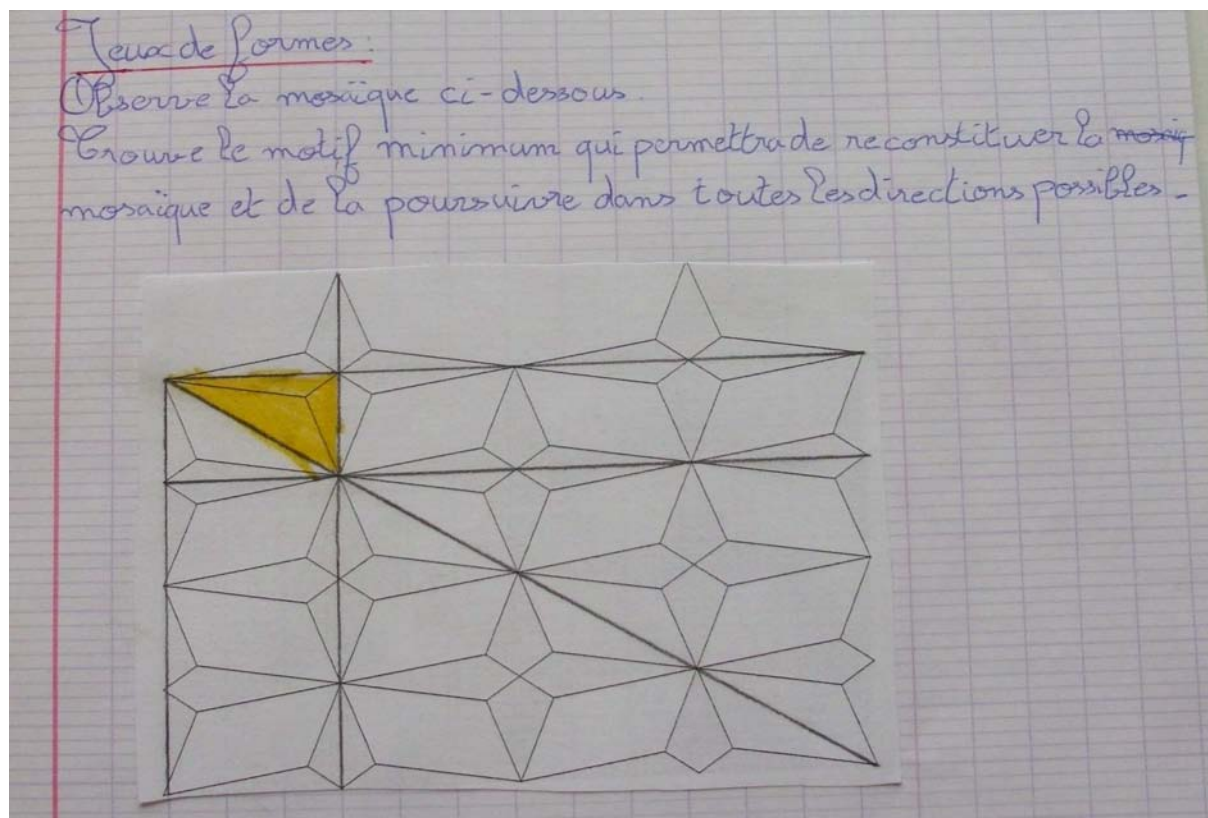 Jeux de formes :
Observe la mosaïque ci-dessous.
Trouve le motif minimum qui permettra de reconstituer la mosaiq
mosaïque et de la poursuivre dans toutes les directions possibles.